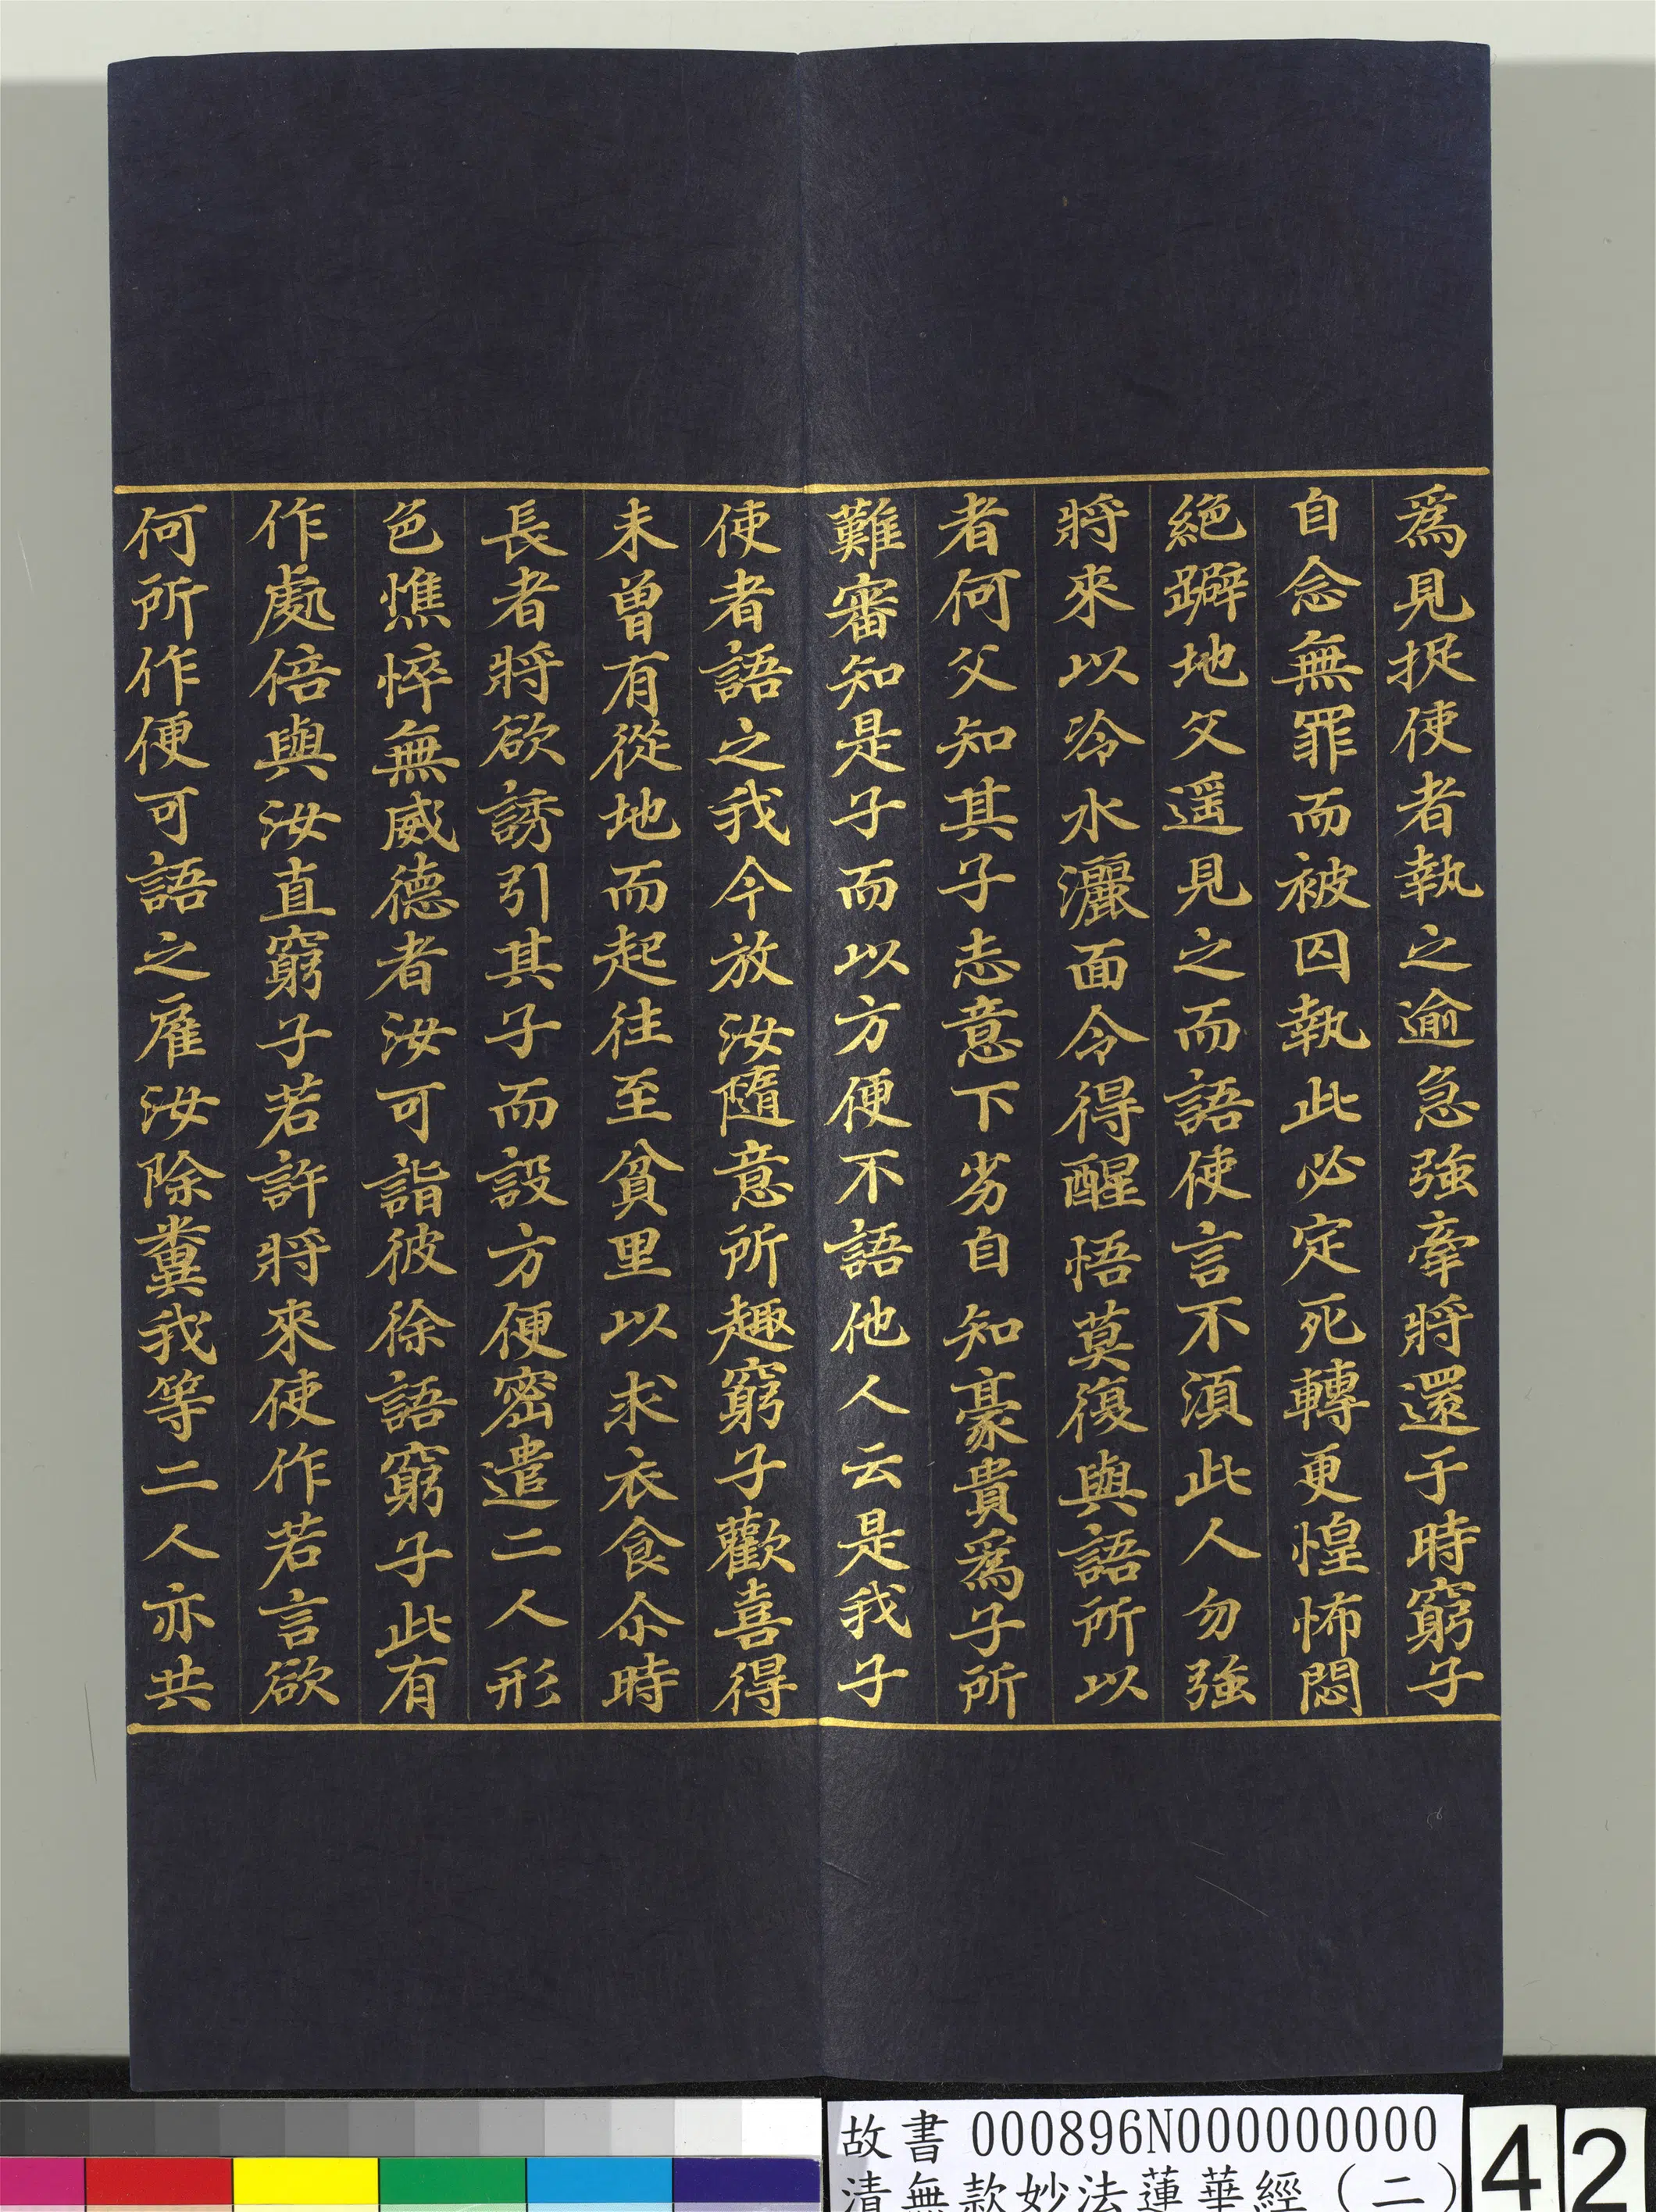 爲見捉使者執之逾急強牽將還于時窮子
自念無罪而被囚執此必定死轉更惶怖悶
絕躃地父遥見之而語使言不湏此人勿強
將來以冷水灑面令得醒悟莫復與語所以
者何父知其子志意下劣自知豪貴爲子所
難審知是子而以方便不語他人云是我子
使者語之我今放汝隨意所趣窮子歡喜得
未曾有從地而起往至貧里以求衣食尒時
長者將欲誘引其子而設方便密遣二人形
色憔悴無威德者汝可詣彼徐語窮子此有
作處倍與汝直窮子若許將來使作若言欲
何所作便可語之雇汝除糞我等二人亦共
故書 000896N000000000
清無款妙法蓮華經（二）
42